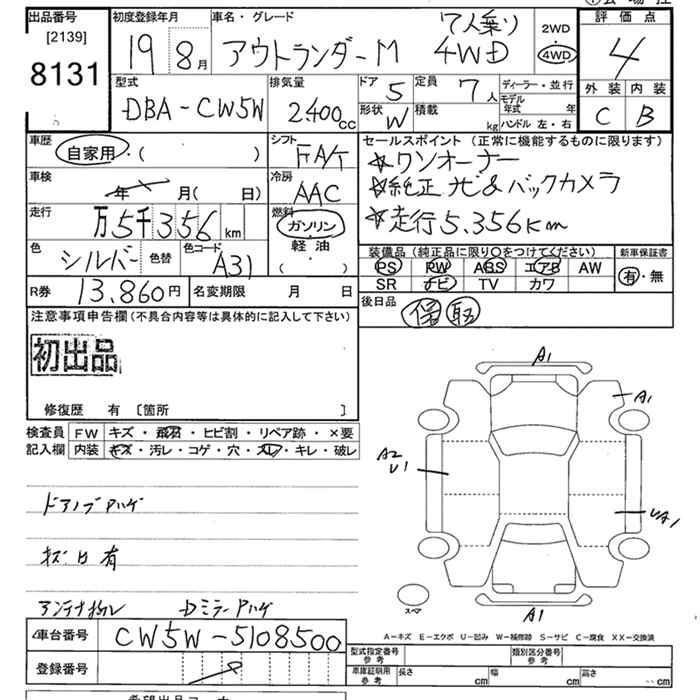 出品番号 初度登録年月 車名・グレード 7人乗り 2WD 評価点
[2139] 19 8月 アウトランダーM 4WD 4WD 4
8131
型式 排気量 ドア 5 定員 7人 ディーラー・並行 外装 内装
DBA-CW5W 2400cc 形状 W 積載 kg モデル年式 年 C B
ハンドル 左・右
車歴 シフト セールスポイント(正常に機能するものに限ります)
自家用・( ) FAT ☆ワンオーナー
車検 冷房 ☆純正ナビ&バックカメラ
年 月( 日) AAC ☆走行5.356km
走行 燃料
万5千356km ガソリン
色 色替 色コード 軽油 装備品(純正品に限り○をつけてください) 新車保証書
シルバー A31 ( ・ ) PS PW ABS エアB AW 有・無
SR ナビ TV カワ
R券 13,860円 名変期限 月 日 後日品
保 取
注意事項申告欄(不具合内容等は具体的に記入して下さい)
初出品
修復歴 有 [箇所 ]
検査員 FW キズ・飛石・ヒビ割・リペア跡・×要
記入欄 内装 キズ・汚レ・コゲ・穴・スレ・キレ・破レ
A1
A1
A2
U1
UA1
A1
スペア
ドアノブハゲ
キズ凹有
アンテナ Dミラーハゲ
A−キズ E−エクボ U−凹み W−補修跡 S−サビ C−腐食 XX−交換済
車台番号 CW5W-5108500
登録番号
型式指定番号 参考 類別区分番号 参考
車庫証明用 参考 長さ cm 幅 cm 高さ cm